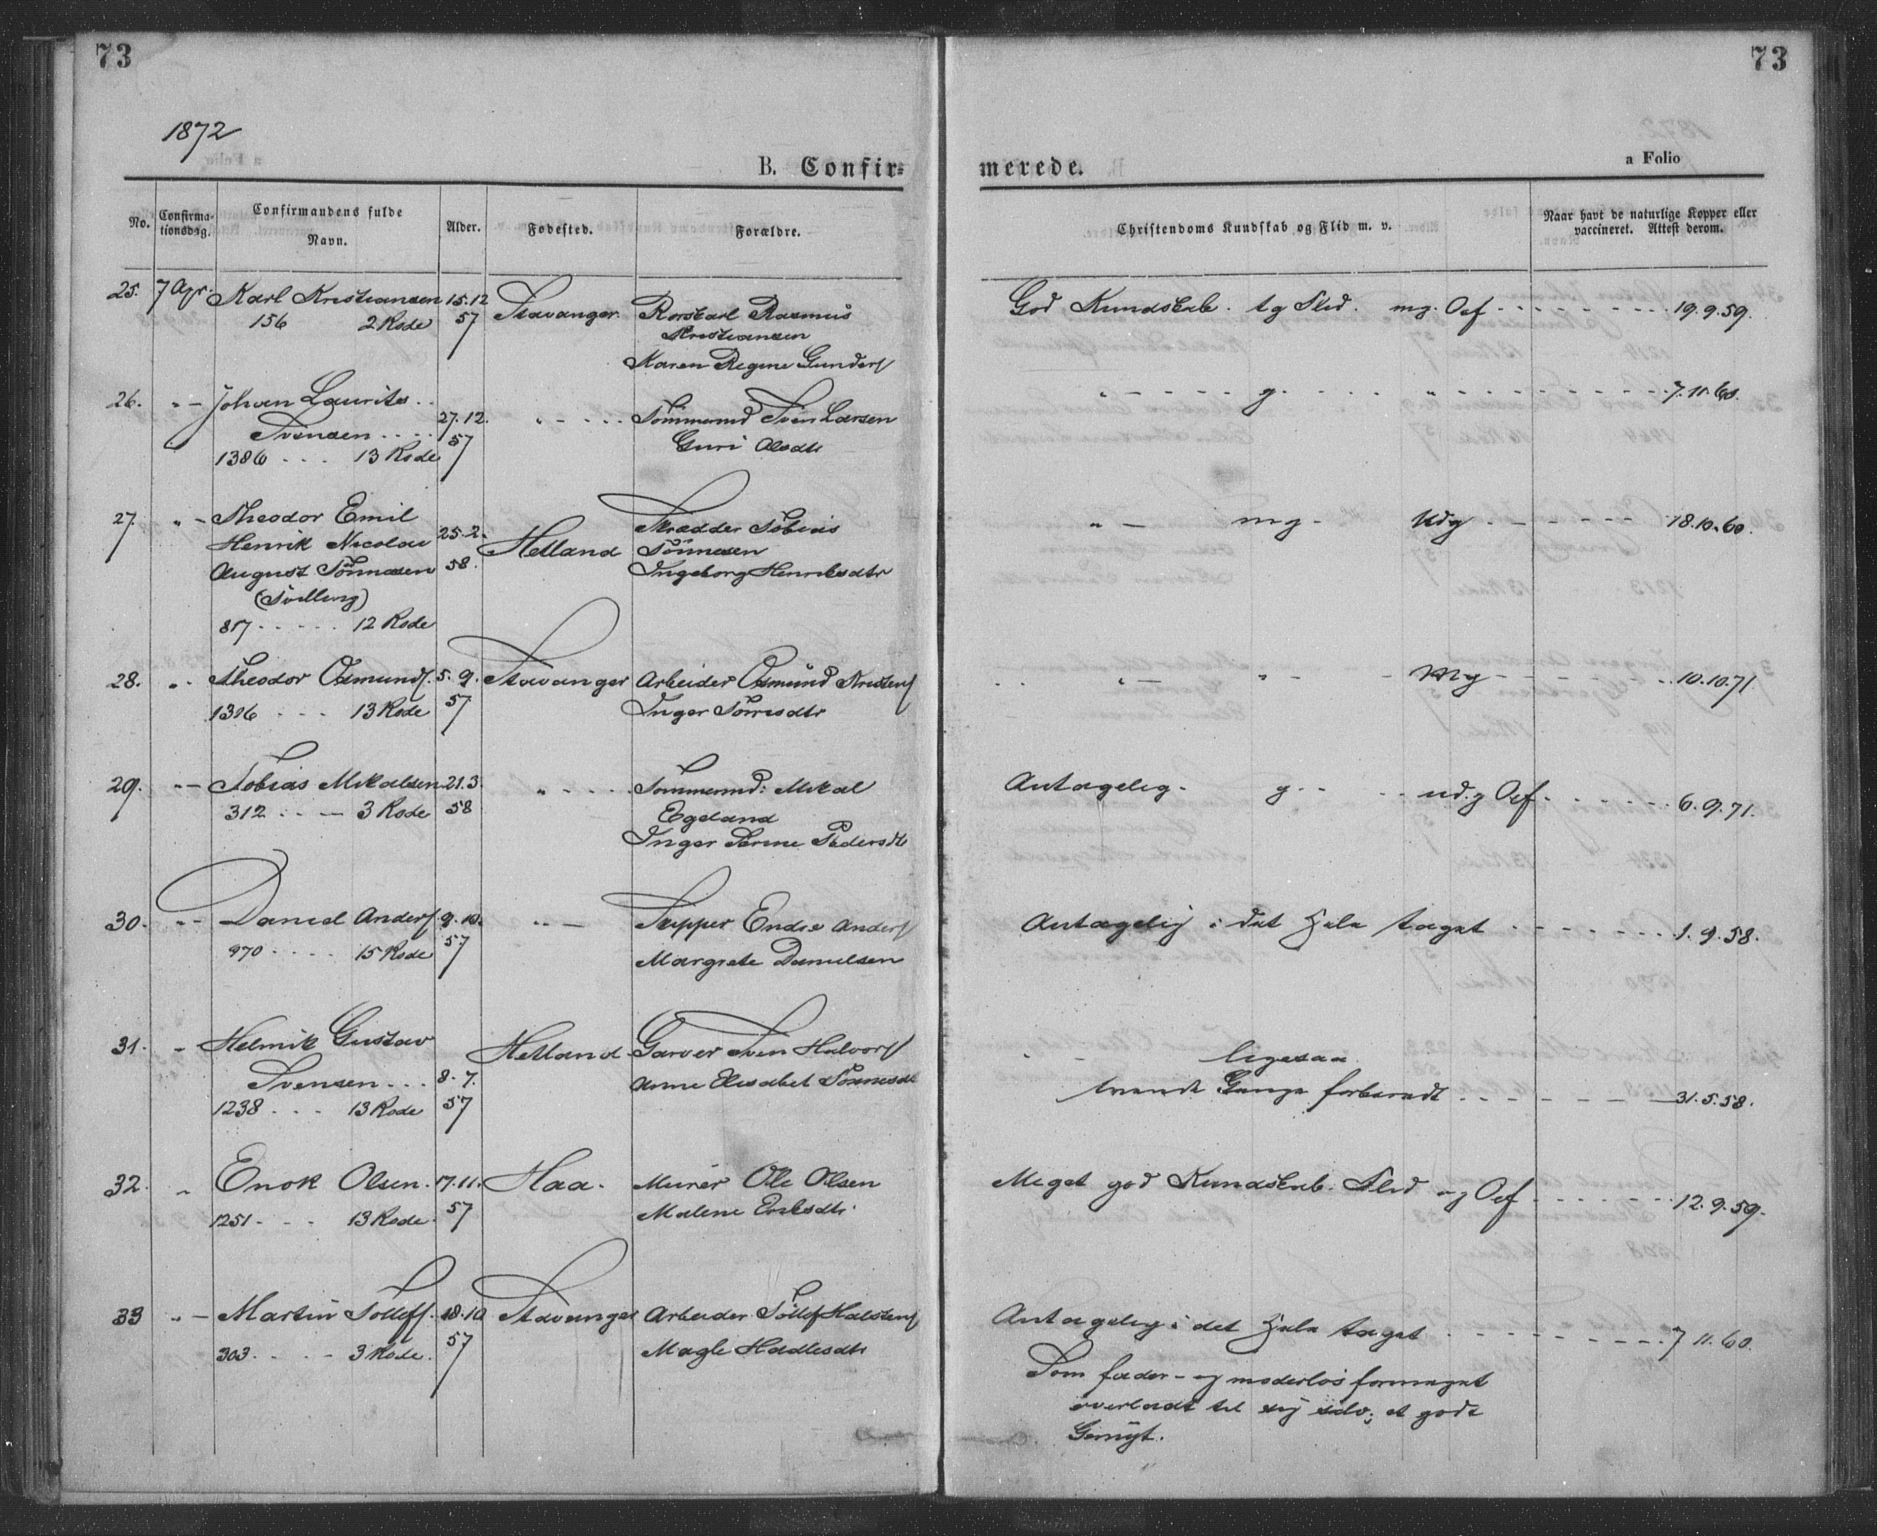 73
73
1872
B. Confir=
merede.
a Folio
No.
Confirma-
tionsdag.
Confirmandens fulde
Navn.
Alder.
Fødested.
Forældre.
Christendoms Kundskab og Flid m. v.
Naar havt de naturlige Kopper eller
vaccineret. Attest derom.
25. 7 Apr. Karl Kristiansen 15.12 Stavanger. Rorskarl Rasmus God Kundskab. tg Flid. mg. Opf - - - 19.9.59.
156 2 Rode 57 Kristiansen
Karen Regine Gunders
26. " - Johan Laurits " - - - g. - - " - - - 7.11.60.
Svensen 27.12. " - - - Tømmermd Sven Larsen
1386 - - - 13 Rode 57 Guri Olsdtr
27. " - Theodor Emil Skrædder Tobias " - mg - Udg - - - 18.10.60.
Henrik Nicolai 25.2. Hetland Tönnesen
August Tönnesen 58. Ingeborg Henriksdtr
817 - - - 12 Rode
28. " - Theodor Osmunds. 5.9. Stavanger Arbeider Osmund " - " - Mg - - - 10.10.71.
1306 - - - 13 Rode 57 Inger
29. " - Tobias Mikalsen 21.3. " - - - Tømmermd: Mikal Antagelig. g. - - ud.g Opf - - - 6.9.71.
312 - - - 3 Rode 58 Egeland
Inger Serine Pedersdtr
30. " - Daniel Anders. 9.10. " - Skipper Endre Anders. Antagelig i det Hele taget - - - 1.9.58.
970 - - - 15 Rode 57 Margrete Danielsen
31. " - Helmik Gustav Hetland Garver Sven Halvors. ligesaa
Svensen - - - 8.7. Anne Elisabet Tönnesdtr Gange forberedt - - - 31.5.58.
1238 - - - 13 Rode 57
32. " Enok Olsen. 17.11. Haa. Murer Ole Olsen Meget god Kundskab. Flid og Opf - - - 12.9.59.
1251 - - - 13 Rode 57 Malene Eriksdtr.
33 " - Martin Tollefs. 18.10 Stavanger Arbeider Tollef Antagelig i det Hele taget - - - 7 11.60.
303. - - - 3 Rode. 57 Magle Hadlesdtr
Som fader- og moderløs formeget
overladt til sig selv; et godt
Gemyt.